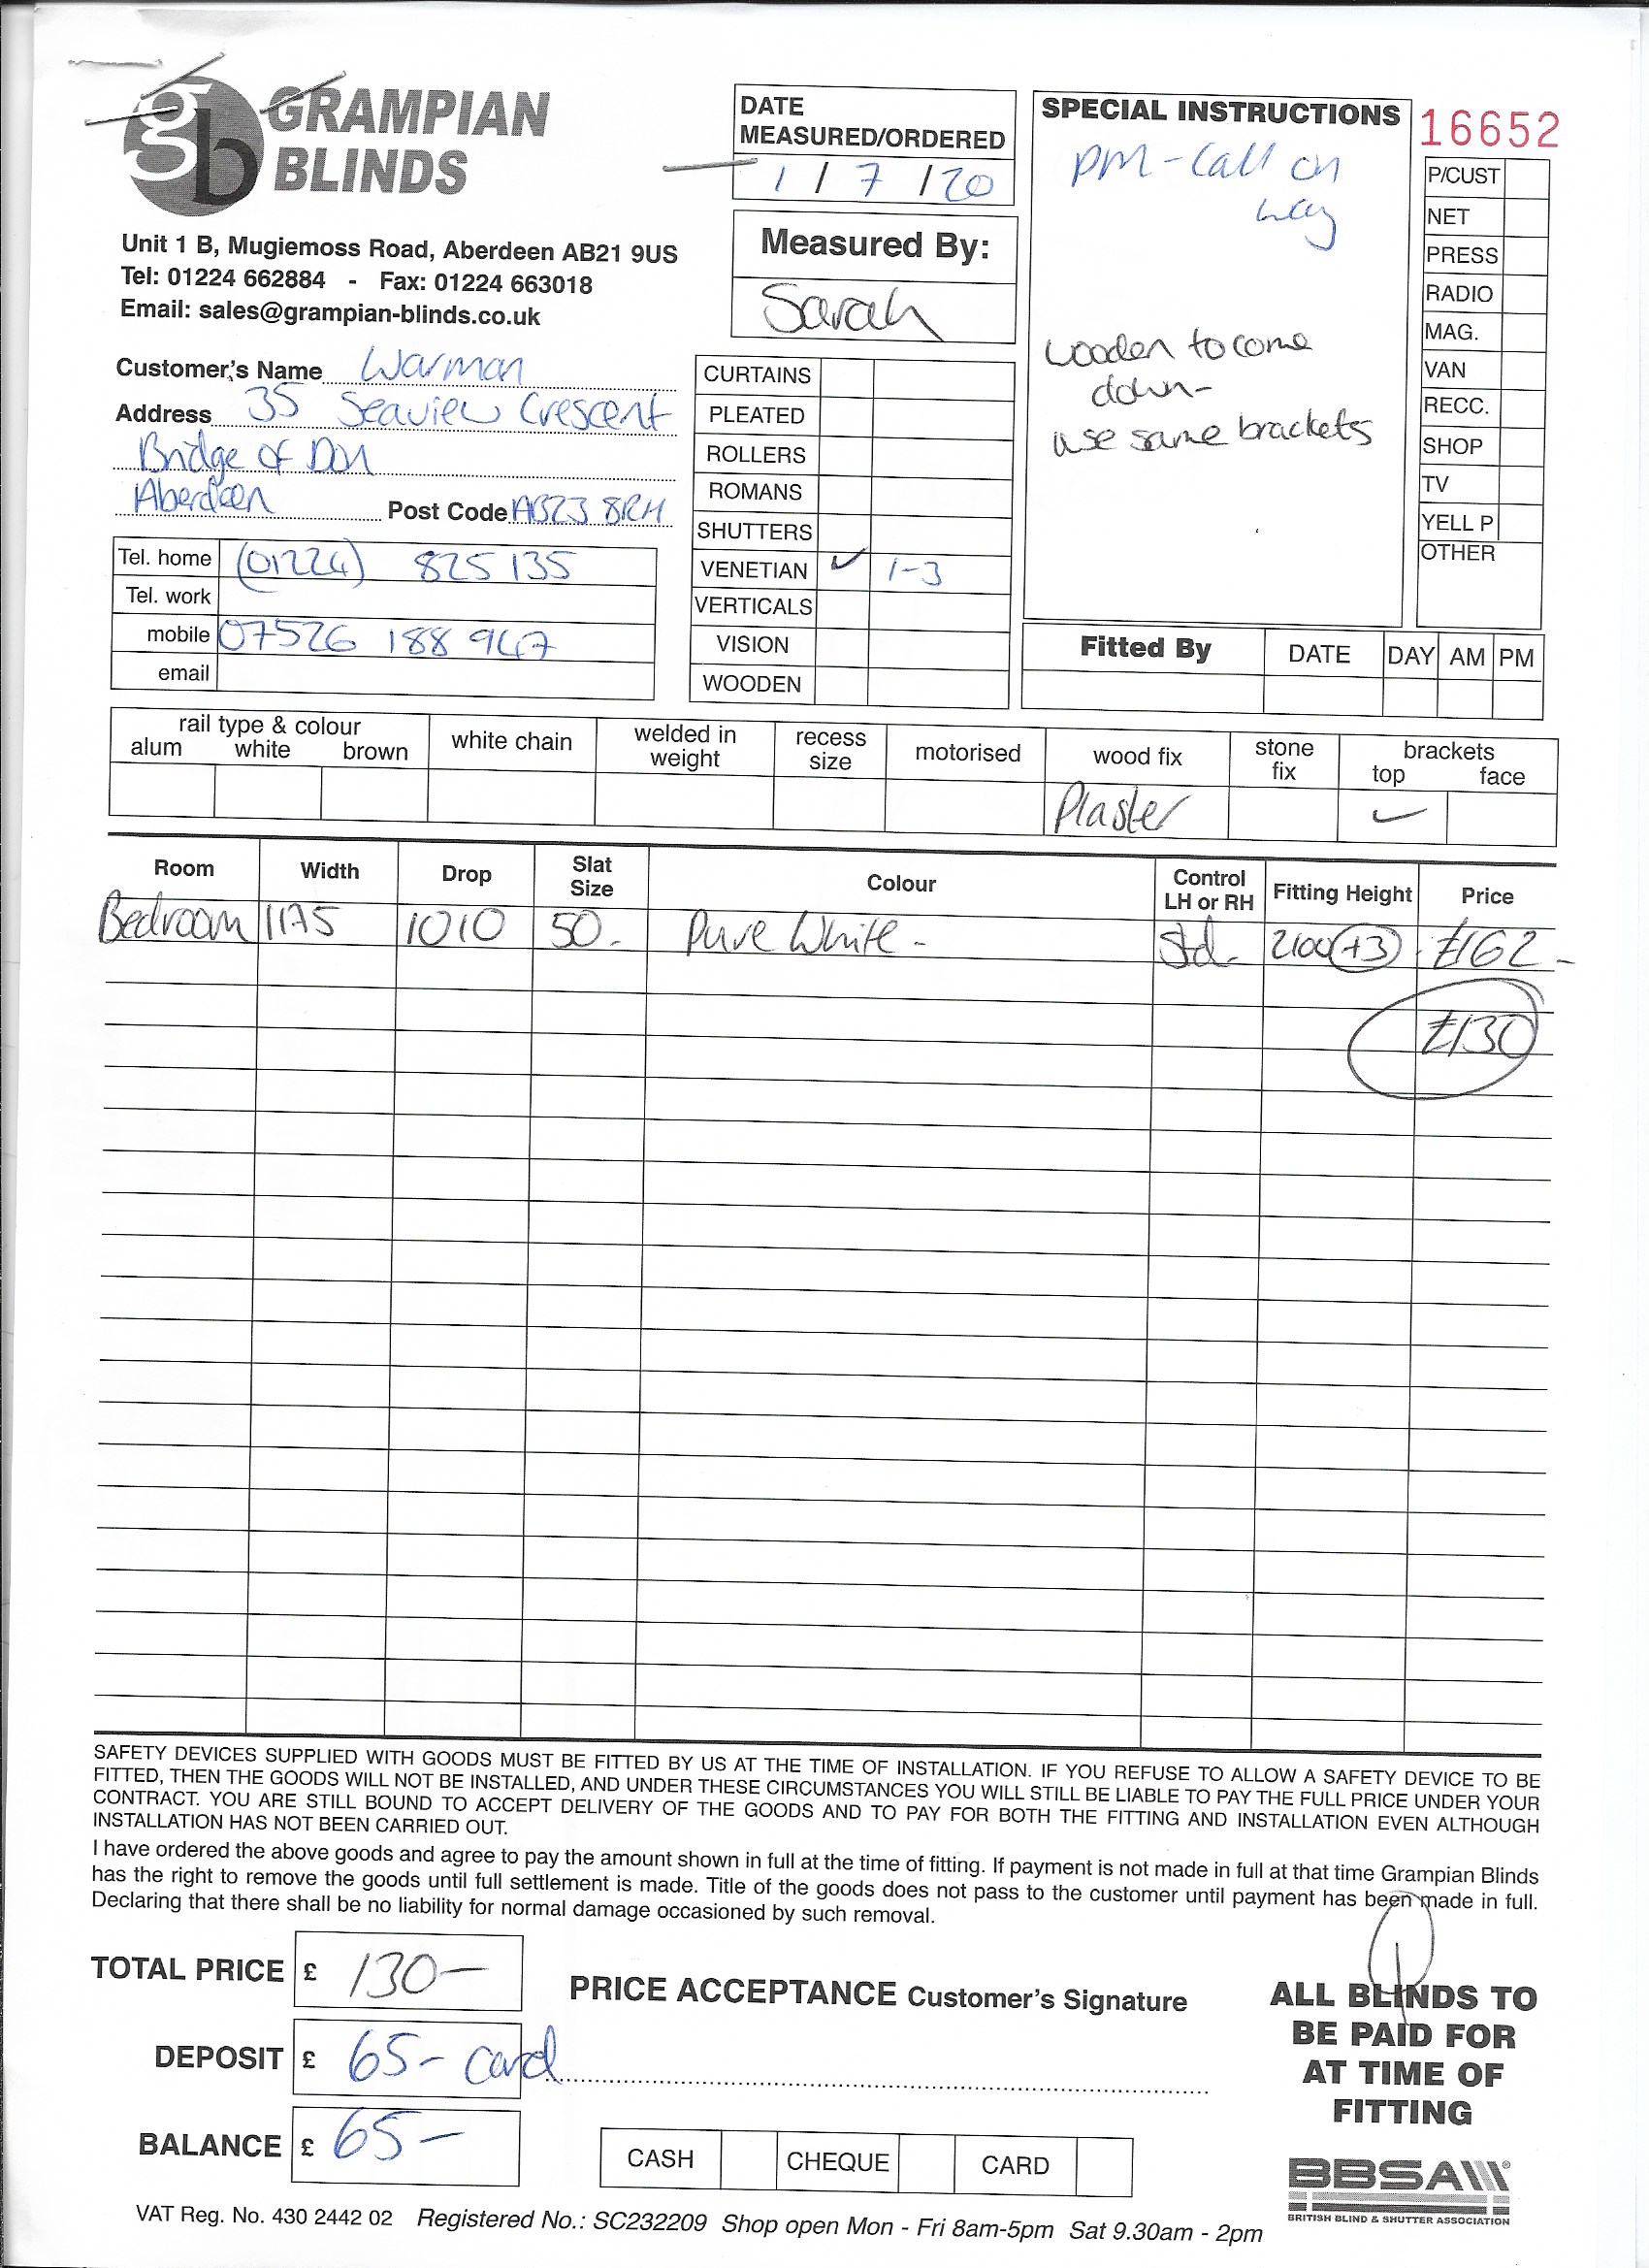 gb GRAMPIAN
BLINDS
Unit 1 B, Mugiemoss Road, Aberdeen AB21 9US
Tel: 01224 662884 - Fax: 01224 663018
Email: sales@grampian-blinds.co.uk
DATE
MEASURED/ORDERED
1 / 7 / 20
Measured By:
Sarah
SPECIAL INSTRUCTIONS
pm - call on
way
wooden to come
down-
use same brackets
16652
P/CUST
NET
PRESS
RADIO
MAG.
VAN
RECC.
SHOP
TV
YELL P
OTHER
Customer's Name Warman
Address 35 Seaview Crescent
Bridge of Don
Aberdeen Post Code AB23 8RH
Tel. home (01224) 825135
Tel. work
mobile 07526 188 947
email
CURTAINS
PLEATED
ROLLERS
ROMANS
SHUTTERS
VENETIAN ✓ 1-3
VERTICALS
VISION
WOODEN
Fitted By DATE DAY AM PM
rail type & colour
alum white brown
white chain
welded in
weight
recess
size
motorised
wood fix
stone
fix
brackets
top face
Plaster ✓
Room Width Drop Slat Size Colour Control LH or RH Fitting Height Price
Bedroom 1010 50. Pure White - Std. 2100 (+3) £162-
£130
SAFETY DEVICES SUPPLIED WITH GOODS MUST BE FITTED BY US AT THE TIME OF INSTALLATION. IF YOU REFUSE TO ALLOW A SAFETY DEVICE TO BE
FITTED, THEN THE GOODS WILL NOT BE INSTALLED, AND UNDER THESE CIRCUMSTANCES YOU WILL STILL BE LIABLE TO PAY THE FULL PRICE UNDER YOUR
CONTRACT. YOU ARE STILL BOUND TO ACCEPT DELIVERY OF THE GOODS AND TO PAY FOR BOTH THE FITTING AND INSTALLATION EVEN ALTHOUGH
INSTALLATION HAS NOT BEEN CARRIED OUT.
I have ordered the above goods and agree to pay the amount shown in full at the time of fitting. If payment is not made in full at that time Grampian Blinds
has the right to remove the goods until full settlement is made. Title of the goods does not pass to the customer until payment has been made in full.
Declaring that there shall be no liability for normal damage occasioned by such removal.
TOTAL PRICE £ 130-
DEPOSIT £ 65- card
BALANCE £ 65-
PRICE ACCEPTANCE Customer's Signature
CASH CHEQUE CARD
ALL BLINDS TO
BE PAID FOR
AT TIME OF
FITTING
BBSA
BRITISH BLIND & SHUTTER ASSOCIATION
VAT Reg. No. 430 2442 02 Registered No.: SC232209 Shop open Mon - Fri 8am-5pm Sat 9.30am - 2pm